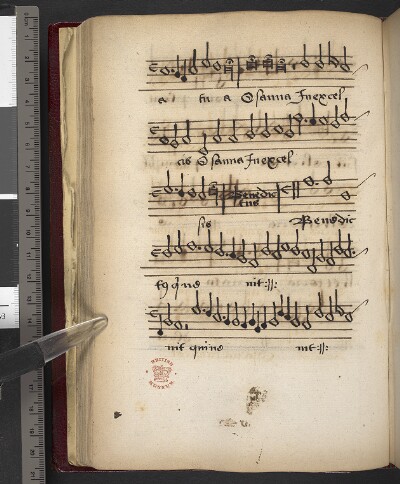 a tu a Osanna Inexcel
cis Osanna Inexcel
Benedic
tus
sis Benedic
nit :||:
nit nit :||:
BRITISH
MUSEUM